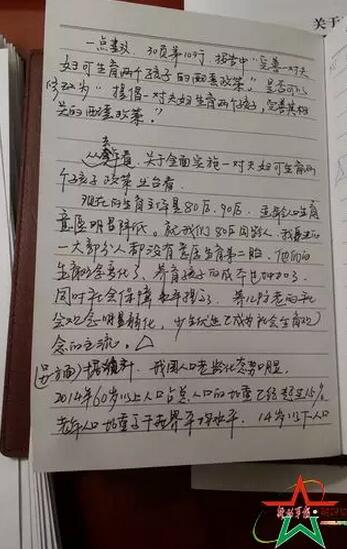 关于
一点建议，30页第10行，报告中“完善一对夫
妇可生育两个孩子的配套政策。”是否可以
修改为“提倡一对夫妇生育两个孩子，完善其相
关的配套政策。”
去年
关于全面实施一对夫妇可生育两
个孩子政策出台看
现在的生育主体是80后、90后，
意愿明显降低。就我们80后同龄人，我身边的
一大部分人都没有意愿生育第二胎，他们的
生育观念变化了、养育孩子的成本也增加了
同时社会保障水平提高，养儿防老的社
会观念明显转化，少生优生已成为社会生育观
念的主流。
（另方面）据统计，我国人口老龄化态势明显，
2014年60岁以上人口占总人口的比重已经超过15%
老年人口比重高于世界平均水平，14岁以下人口